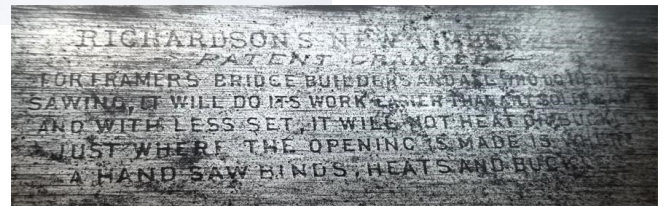 RICHARDSON'S NEW TIMBER
PATENT GRANTED
FOR FRAMERS BRIDGE BUILDERS AND ALL WHO DO HEAVY
SAWING, IT WILL DO ITS WORK EASIER THAN ANY SOLID
AND WITH LESS SET, IT WILL NOT HEAT OR BUCK
JUST WHERE THE OPENING IS MADE IS
A HAND SAW BINDS, HEATS AND BUCK